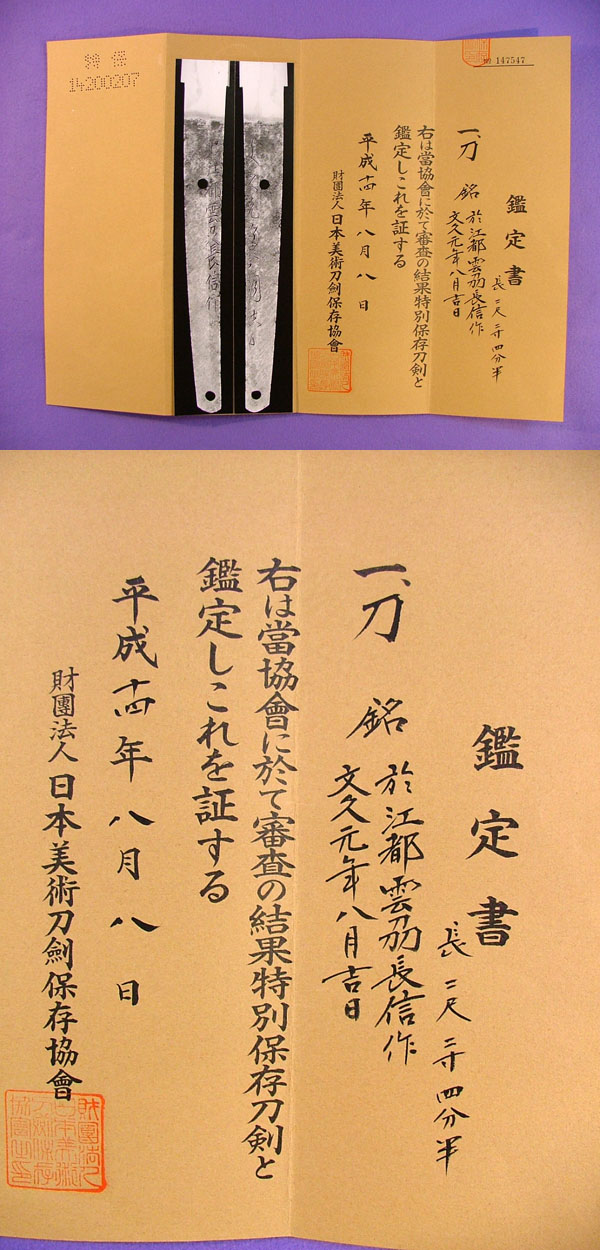 147547
鑑定書
一、刀 銘 於江都雲刕長信作
文久元年八月吉日
長 二尺三寸四分半
右は當協會に於て審査の結果特別保存刀剣と
鑑定しこれを証する
平成十四年八月八日
財團法人日本美術刀劍保存協會
特保
14200207
鑑定書
長 二尺三寸四分半
一、刀 銘 於江都雲刕長信作
文久元年八月吉日
右は當協會に於て審査の結果特別保存刀剣と
鑑定しこれを証する
平成十四年八月八日
財團法人日本美術刀劍保存協會